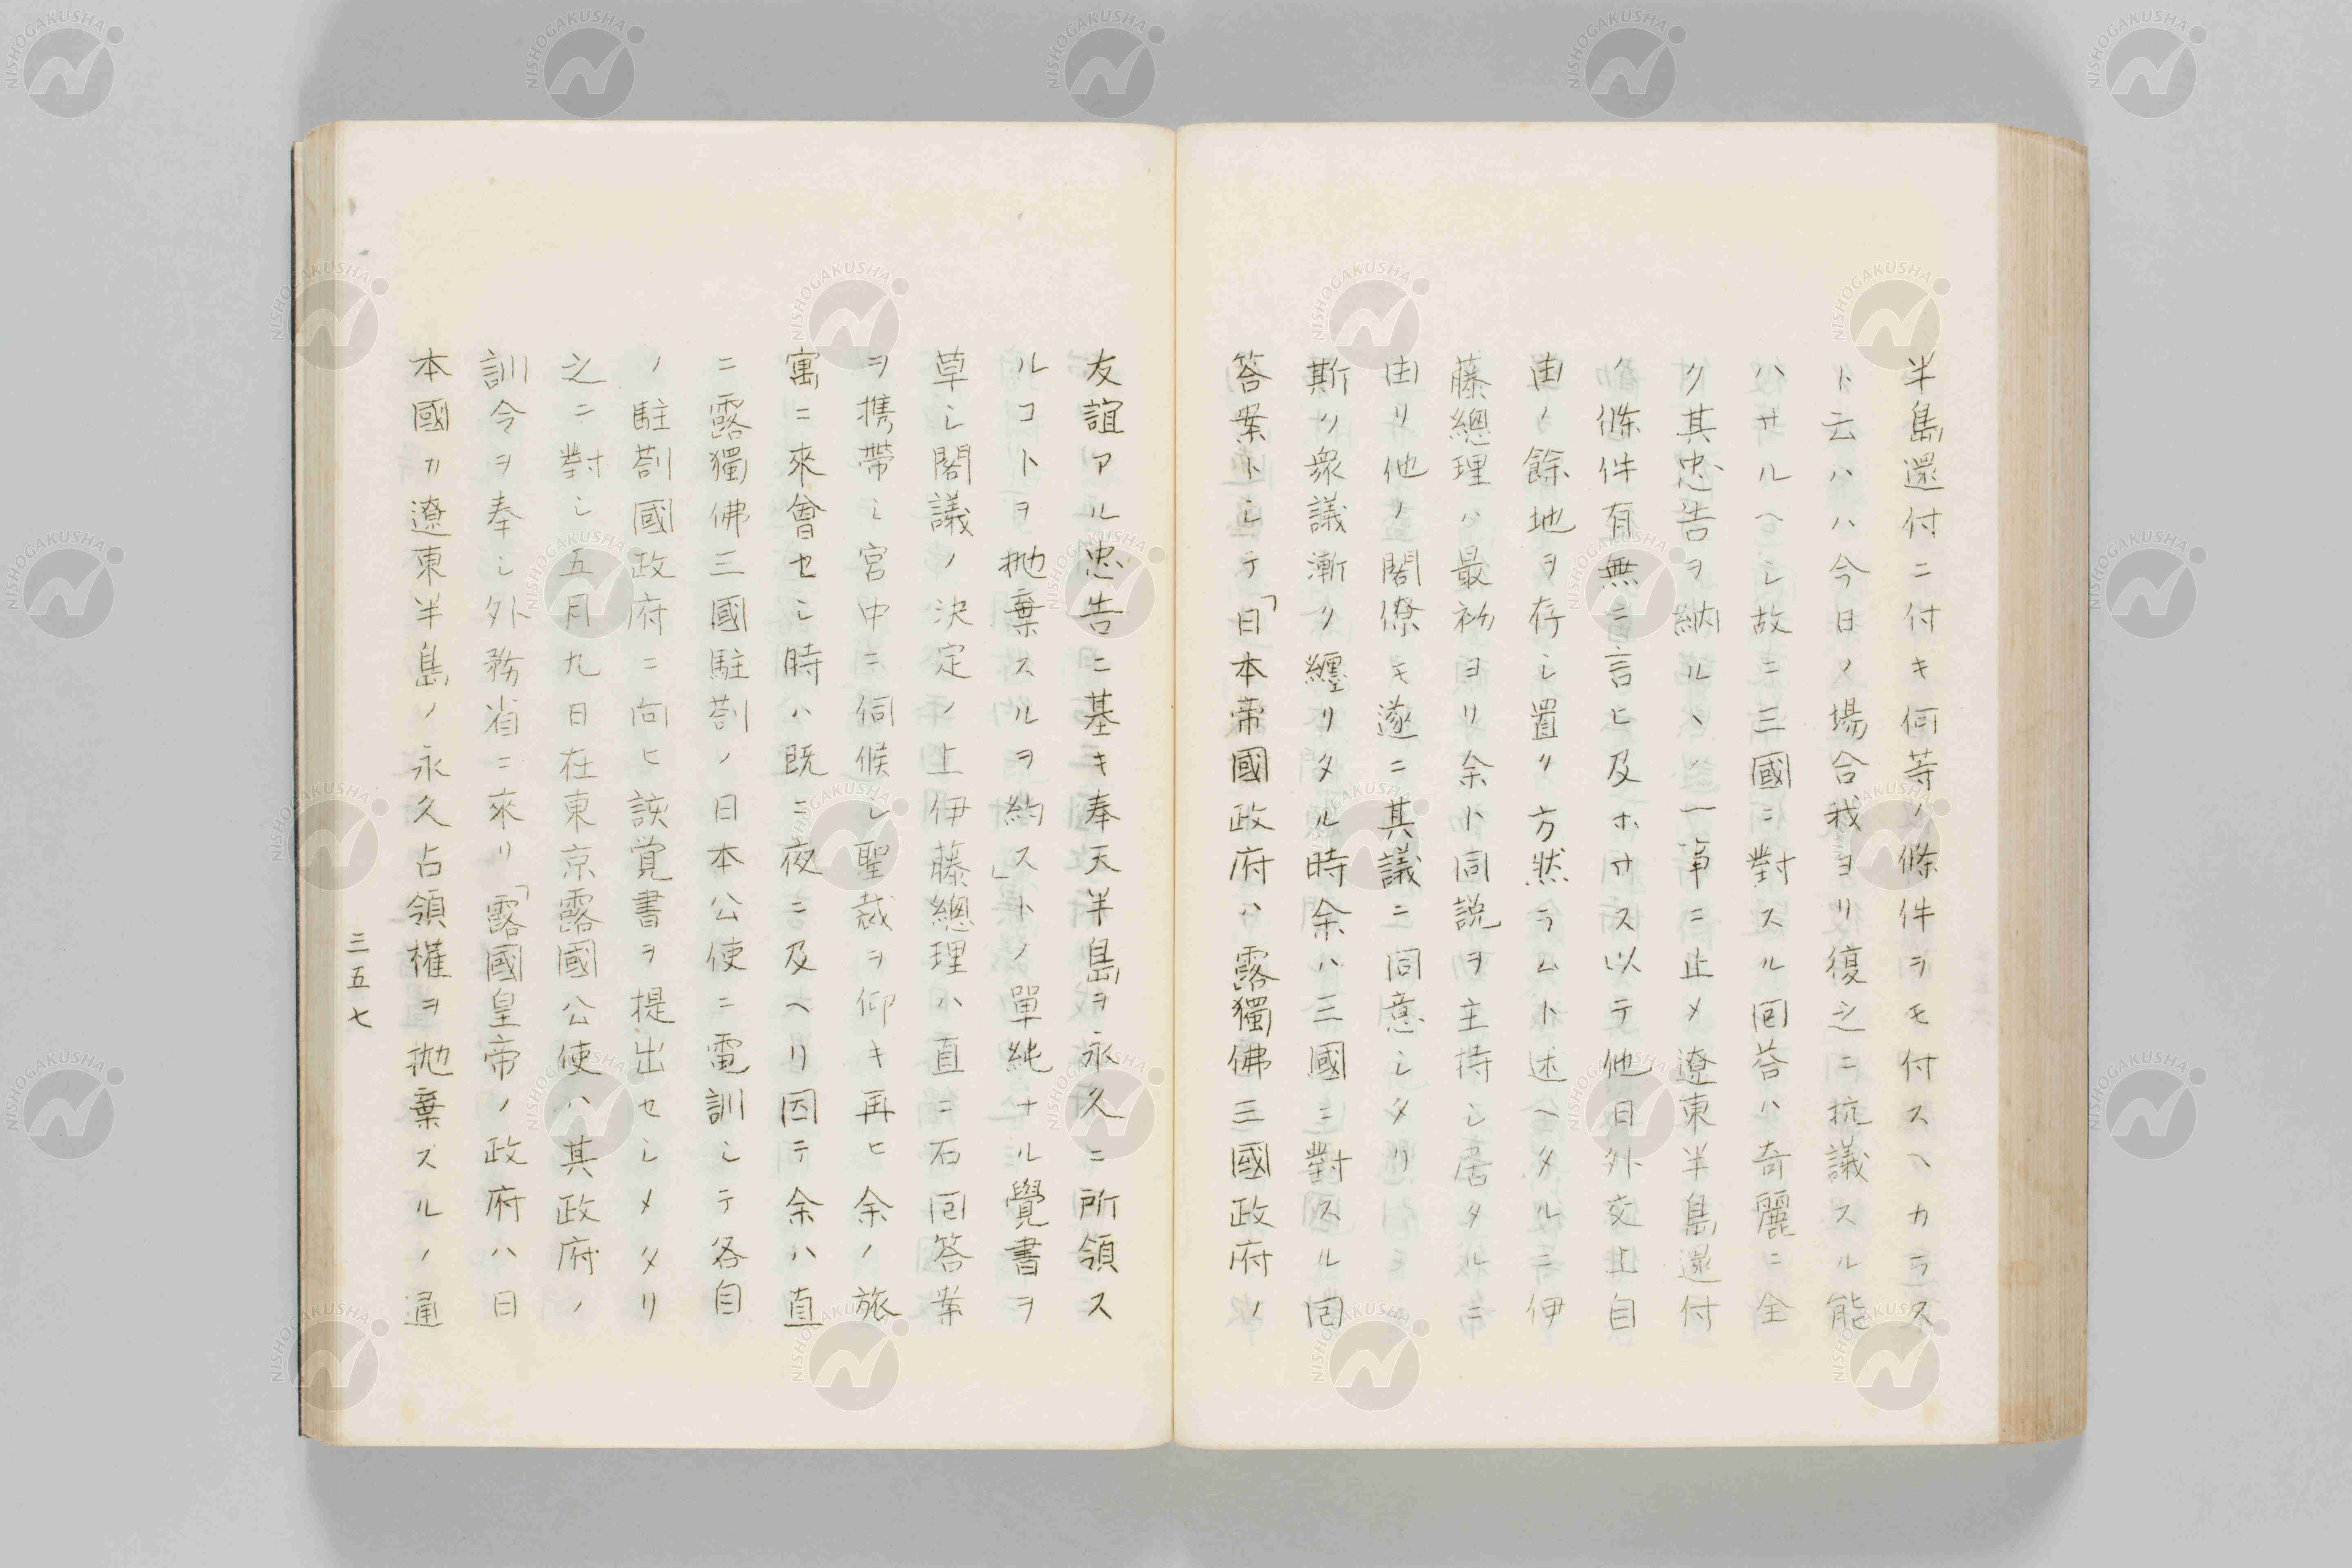 半島還付ニ付キ何等ノ條件ヲモ付スヘカラス
ト云ハハ今日ノ場合我ヨリ復之ニ抗議スル能
ハサルヘシ故ニ三國ニ對スル囘荅ハ奇麗ニ全
ク其忠告ヲ納ルヽノ一事ニ止メ遼東半島還付
ノ條件有無ニ言ヒ及ホサス以テ他日外交上自
由ノ餘地ヲ存シ置ク方然ラムト述ヘタルニ伊
藤總理ハ最初ヨリ余ト同説ヲ主持シ居タルニ
由リ他ノ閣僚モ遂ニ其議ニ同意シタリ
斯ク衆議漸ク纏リタル時余ハ三國ニ對スル囘
答案トシテ「日本帝國政府ハ露獨佛三國政府ノ
友誼アル忠告ニ基キ奉天半島ヲ永久ニ所領ス
ルコトヲ抛棄スルヲ約ス」トノ單純ナル覺書ヲ
草シ閣議ノ決定ノ上伊藤總理ハ直ニ右囘答案
ヲ携帶シ宮中ニ伺候シ聖裁ヲ仰キ再ヒ余ノ旅
寓ニ來會セシ時ハ既ニ夜ニ及ヘリ因テ余ハ直
ニ露獨佛三國駐劄ノ日本公使ニ電訓シテ各自
ノ駐劄國政府ニ向ヒ該覚書ヲ提出セシメタリ
之ニ對シ五月九日在東京露國公使ハ其政府ノ
訓令ヲ奉シ外務省ニ來リ「露國皇帝ノ政府ハ日
本國カ遼東半島ノ永久占領權ヲ抛棄スルノ通
三五七
NISHOGAKUSHA